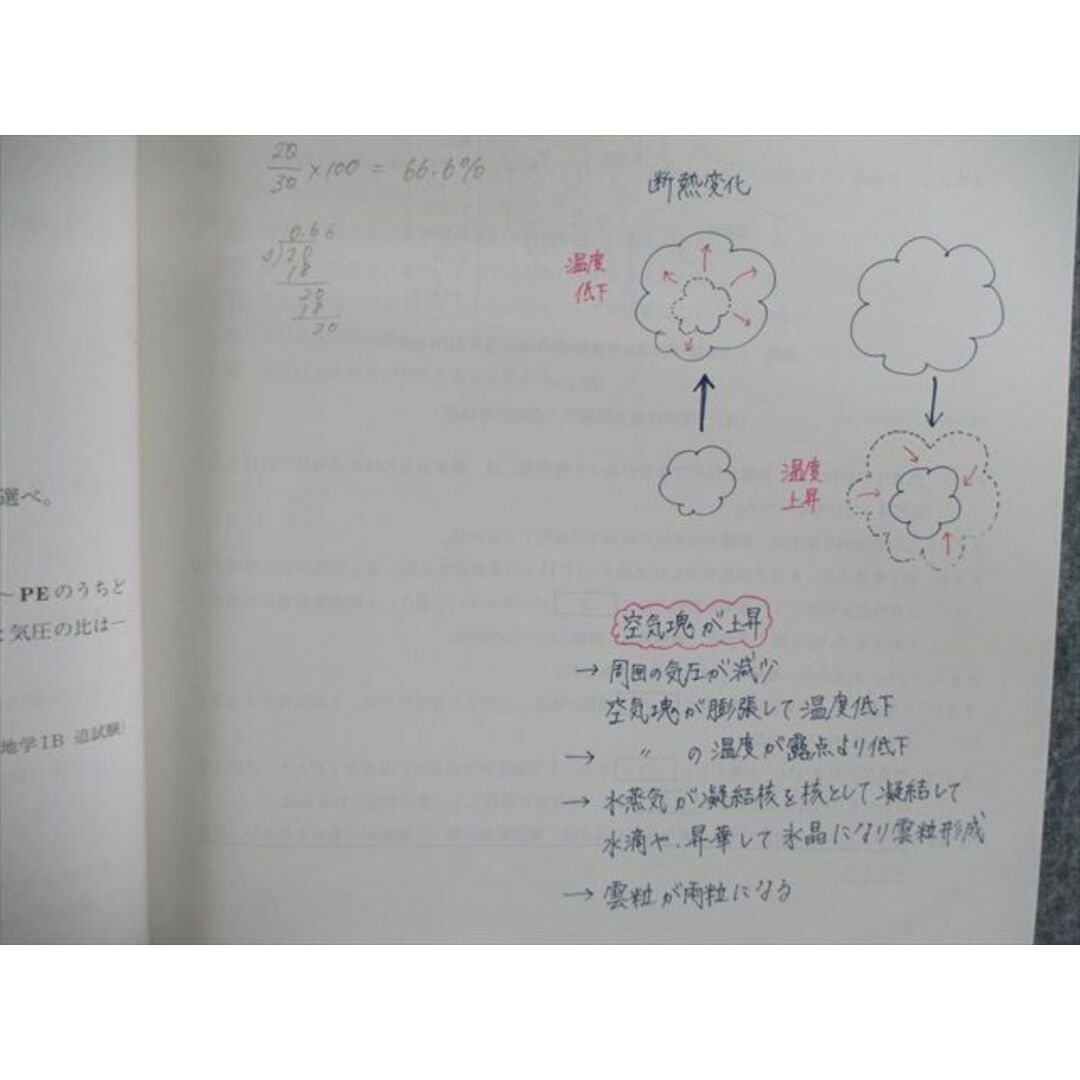 選べ。
～PEのうちど
気圧の比は一
地学IB 追試験)
20/30 ×100 = 66.6%
0.66
3)20
18
20
18
20
断熱変化
温度
低下
温度
上昇
空気塊が上昇
→ 周囲の気圧が減少
空気塊が膨張して温度低下
→ 〃 の温度が露点より低下
→ 水蒸気が凝結核を核として凝結して
水滴や、昇華して氷晶になり雲粒形成
→ 雲粒が雨粒になる